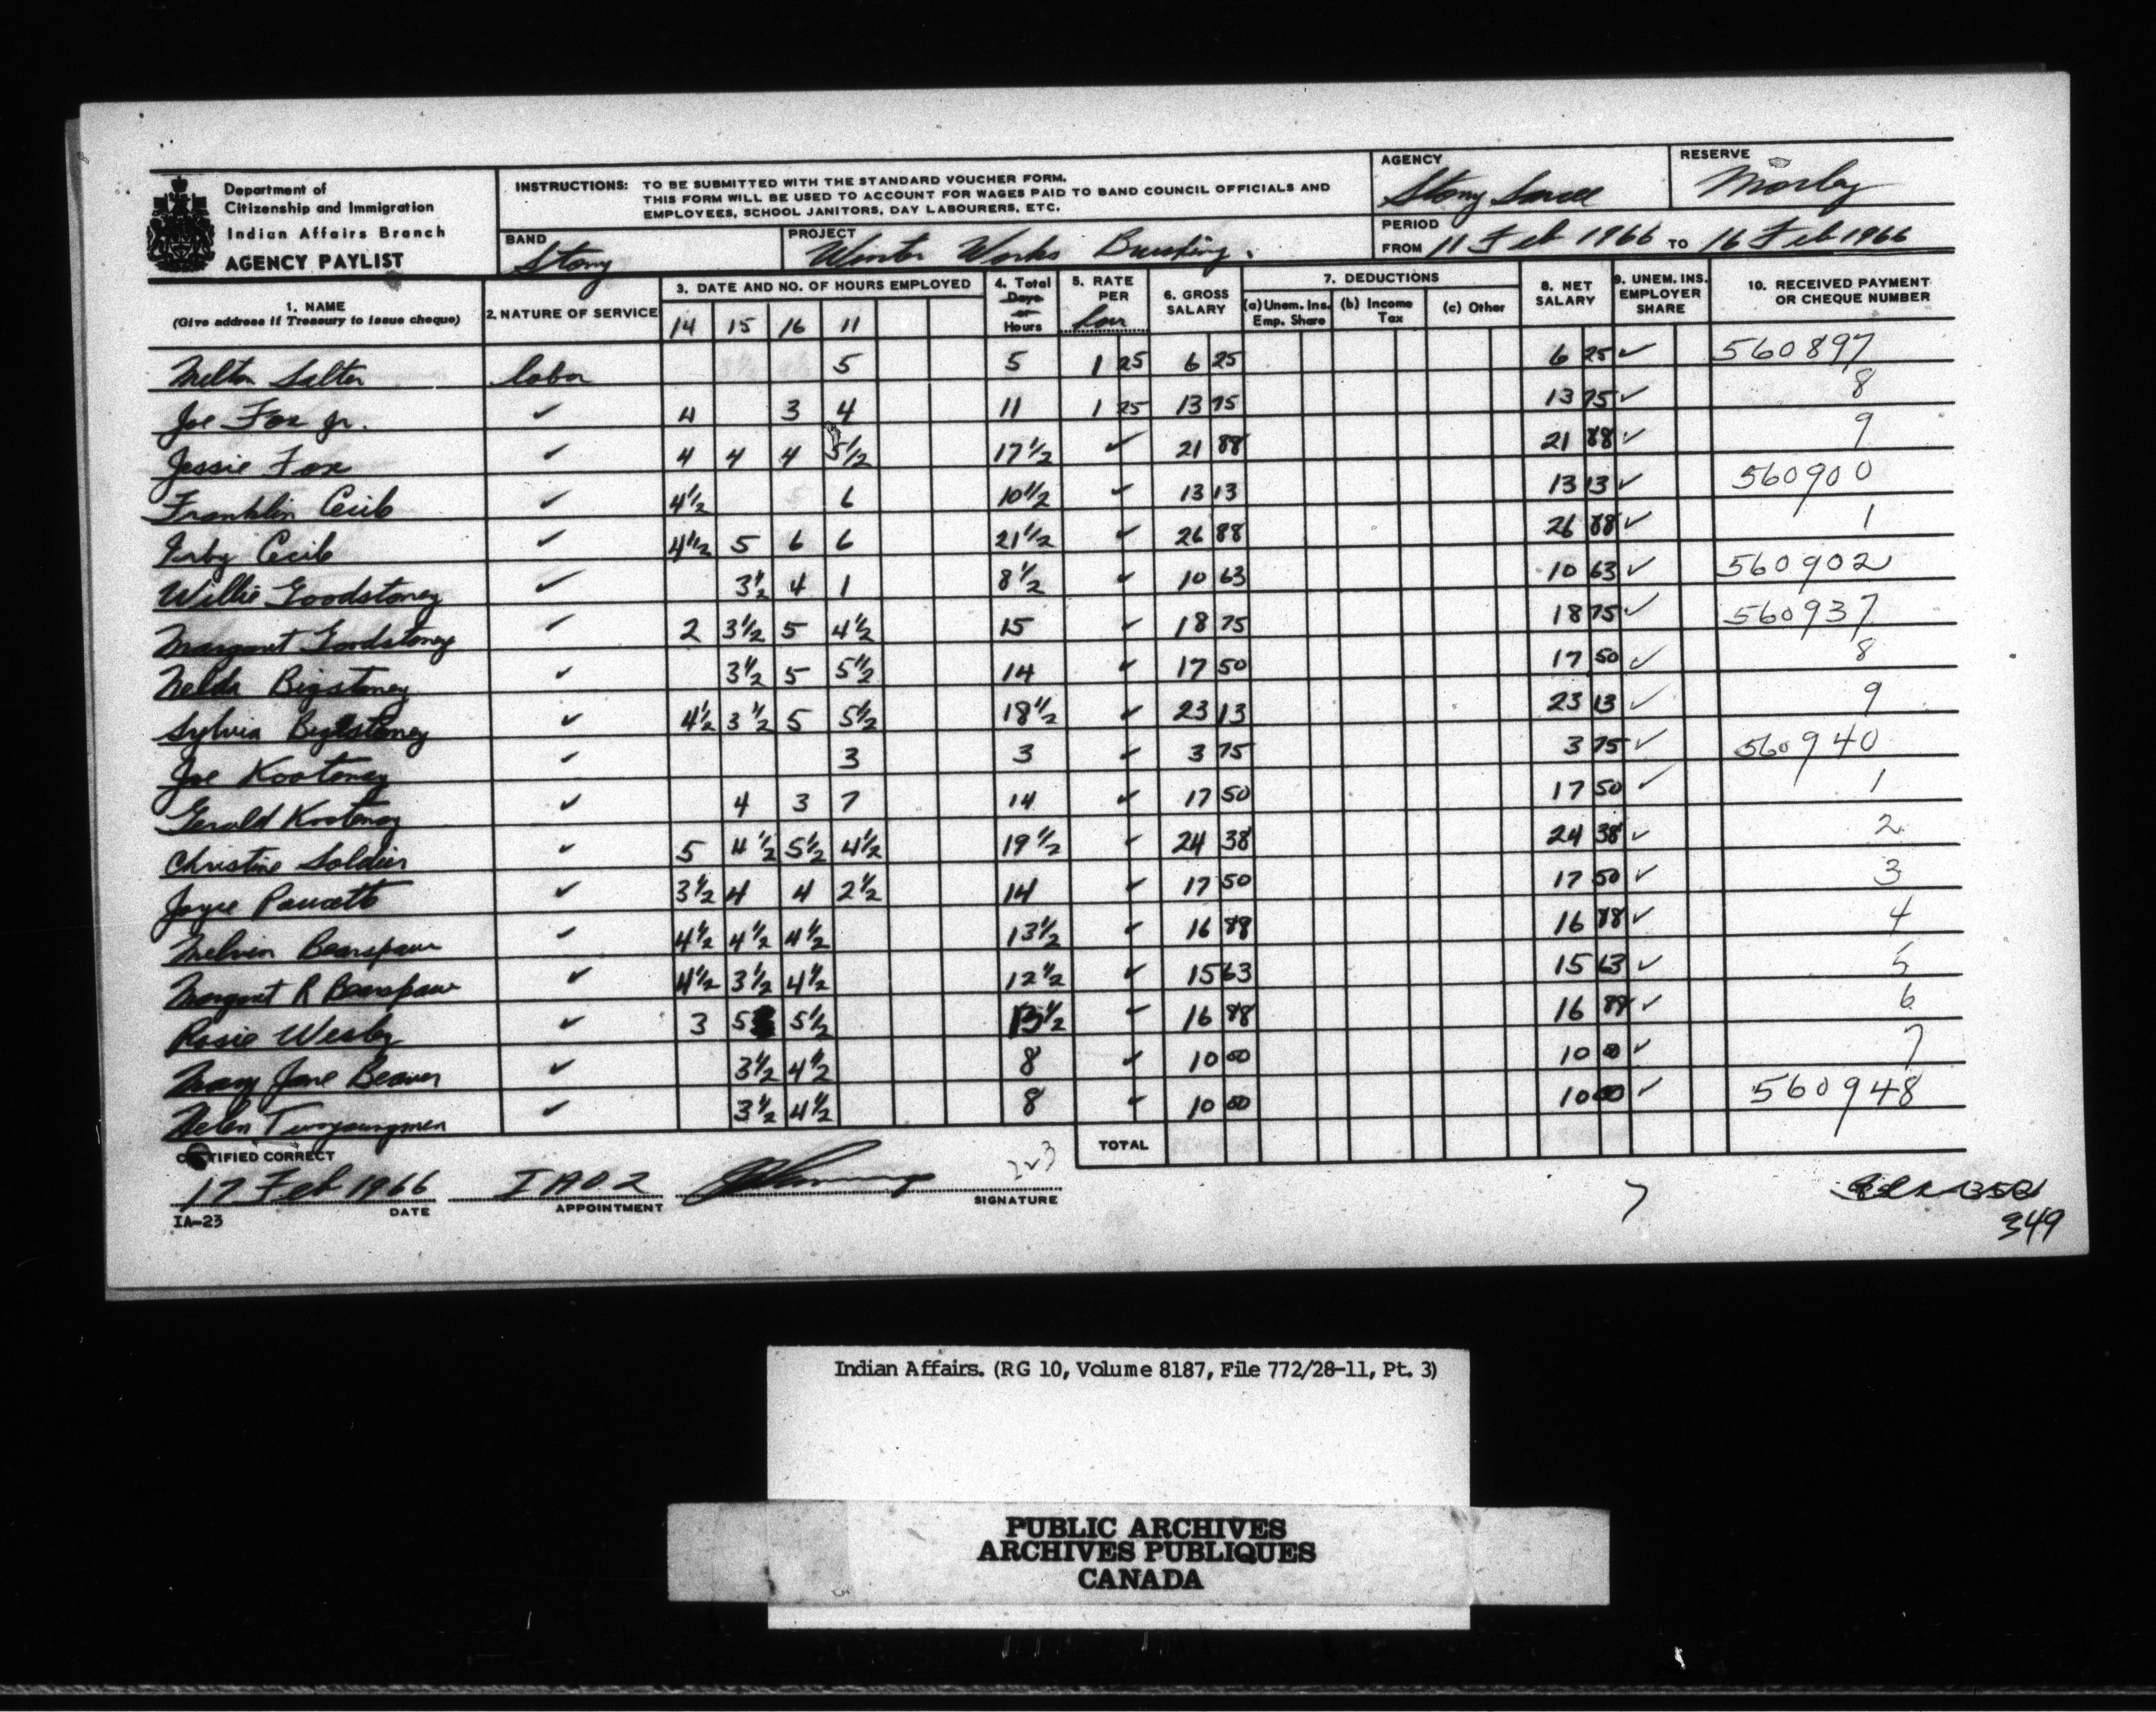 Department of
Citizenship and Immigration
Indian Affairs Branch
AGENCY PAYLIST
INSTRUCTIONS: TO BE SUBMITTED WITH THE STANDARD VOUCHER FORM.
THIS FORM WILL BE USED TO ACCOUNT FOR WAGES PAID TO BAND COUNCIL OFFICIALS AND
EMPLOYEES, SCHOOL JANITORS, DAY LABOURERS, ETC.
AGENCY
Stony Sarcee
RESERVE
Morley
BAND
Stony
PROJECT
Winter Works Brushing.
PERIOD
FROM 11 Feb 1966 TO 16 Feb 1966
1. NAME
(Give address if Treasury to issue cheque)
2. NATURE OF SERVICE
3. DATE AND NO. OF HOURS EMPLOYED
14 15 16 11
4. Total
Days
or
Hours
5. RATE
PER
hour
6. GROSS
SALARY
7. DEDUCTIONS
(a) Unem. Ins.
Emp. Share
(b) Income
Tax
(c) Other
8. NET
SALARY
9. UNEM. INS.
EMPLOYER
SHARE
10. RECEIVED PAYMENT
OR CHEQUE NUMBER
Melton Salter labor 5 5 1 25 6 25 6 25 ✓ 560897
Joe Fox Jr. ✓ 4 3 4 11 1 25 13 75 13 75 ✓ 8
Jessie Fox ✓ 4 4 4 5 1/2 17 1/2 ✓ 21 88 21 88 ✓ 9
Franklin Cecil ✓ 4 1/2 6 10 1/2 ✓ 13 13 13 13 ✓ 560900
Cecil ✓ 4 1/2 5 6 6 21 1/2 ✓ 26 88 26 88 ✓ 1
Willie Goodstoney ✓ 3 1/2 4 1 8 1/2 ✓ 10 63 10 63 ✓ 560902
Margaret Goodstoney ✓ 2 3 1/2 5 4 1/2 15 ✓ 18 75 18 75 ✓ 560937
Nelda Bigstoney ✓ 3 1/2 5 5 1/2 14 ✓ 17 50 17 50 ✓ 8
Sylvia Bigstoney ✓ 4 1/2 3 1/2 5 5 1/2 18 1/2 ✓ 23 13 23 13 ✓ 9
Joe Kootenay ✓ 3 3 ✓ 3 75 3 75 ✓ 560940
Gerald Kootenay ✓ 4 3 7 14 ✓ 17 50 17 50 ✓ 1
Christine Soldier ✓ 5 4 1/2 5 1/2 4 1/2 19 1/2 ✓ 24 38 24 38 ✓ 2
Joyce ✓ 3 1/2 4 4 2 1/2 14 ✓ 17 50 17 50 ✓ 3
Melvin Bearspaw ✓ 4 1/2 4 1/2 4 1/2 13 1/2 ✓ 16 88 16 88 ✓ 4
Margaret R Bearspaw ✓ 4 1/2 3 1/2 4 1/2 12 1/2 ✓ 15 63 15 63 ✓ 5
Rosie Wesley ✓ 3 5 5 1/2 13 1/2 ✓ 16 88 16 88 ✓ 6
Mary Jane Beaver ✓ 3 1/2 4 1/2 8 ✓ 10 00 10 00 ✓ 7
Helen Twoyoungmen ✓ 3 1/2 4 1/2 8 ✓ 10 00 10 00 ✓ 560948
TOTAL
CERTIFIED CORRECT
17 Feb 1966 IAO 2
DATE APPOINTMENT SIGNATURE
IA-23
7
349
Indian Affairs. (RG 10, Volume 8187, File 772/28-11, Pt. 3)
PUBLIC ARCHIVES
ARCHIVES PUBLIQUES
CANADA